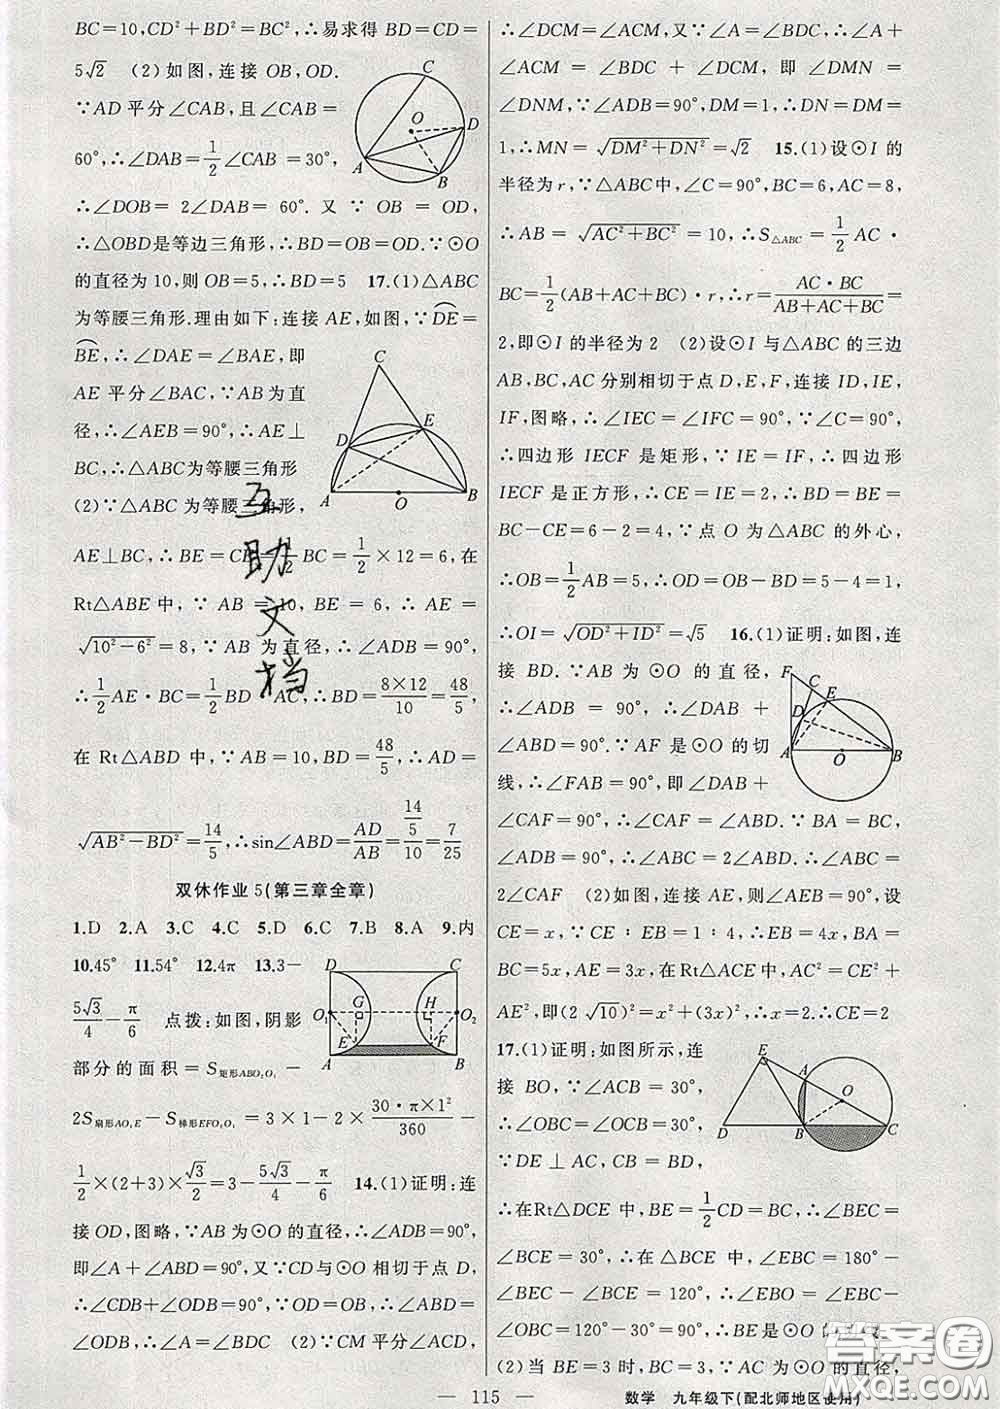 BC=10,CD²+BD²=BC²,∴易求得 BD=CD=
5√2 (2)如图,连接 OB,OD.
∵AD 平分∠CAB,且∠CAB=
60°,∴∠DAB=1/2∠CAB=30°,
∴∠DOB=2∠DAB=60°. 又∵OB=OD,
∴△OBD是等边三角形,∴BD=OB=OD.∵⊙O
的直径为10,则OB=5,∴BD=5 17.(1)△ABC
为等腰三角形.理由如下:连接 AE,如图,∵DE=
BE,∴∠DAE=∠BAE,即
AE 平分∠BAC,∵AB为直
径,∴∠AEB=90°,∴AE⊥
BC,∴△ABC为等腰三角形
(2)∵△ABC 为等腰三角形,
AE⊥BC,∴BE=CE=1/2BC=1/2×12=6,在
Rt△ABE中,∵AB=10,BE=6,∴AE=
√(10²-6²)=8,∵AB 为直径,∴∠ADB=90°,
∴1/2AE·BC=1/2BD·AC,∴BD=(8×12)/10=48/5,
在 Rt△ABD 中,∵AB=10,BD=48/5,∴AD=
√(AB²-BD²)=14/5,∴sin∠ABD=AD/AB=(14/5)/10=7/25
双休作业5(第三章全章)
1.D 2.A 3.C 4.C 5.D 6.C 7.B 8.A 9.内
10.45° 11.54° 12.4π 13.3-
5√3/4-π/6 点拨:如图,阴影
部分的面积=S矩形ABO₂O₁-
2S扇形AO₁E-S梯形EFO₂O₁=3×1-2×(30·π×1²)/360-
1/2×(2+3)×√3/2=3-5√3/4-π/6 14.(1)证明:连
接OD,图略,∵AB为⊙O的直径,∴∠ADB=90°,
即∠A+∠ABD=90°.又∵CD与⊙O相切于点D,
∴∠CDB+∠ODB=90°.∵OD=OB,∴∠ABD=
∠ODB,∴∠A=∠BDC (2)∵CM平分∠ACD,
C
O
D
A
B
C
D
E
A
O
B
D
C
G
H
O₁
O₂
E
F
A
B
∴∠DCM=∠ACM,又∵∠A=∠BDC,∴∠A+
∠ACM=∠BDC+∠DCM,即∠DMN=
∠DNM,∵∠ADB=90°,DM=1,∴DN=DM=
1,∴MN=√(DM²+DN²)=√2 15.(1)设⊙I的
半径为r,∵△ABC中,∠C=90°,BC=6,AC=8,
∴AB=√(AC²+BC²)=10,∴S△ABC=1/2AC·
BC=1/2(AB+AC+BC)·r,∴r=(AC·BC)/(AB+AC+BC)=
2,即⊙I的半径为2 (2)设⊙I与△ABC的三边
AB,BC,AC 分别相切于点D,E,F,连接ID,IE,
IF,图略,∴∠IEC=∠IFC=90°,∵∠C=90°,
∴四边形 IECF 是矩形,∵IE=IF,∴四边形
IECF是正方形,∴CE=IE=2,∴BD=BE=
BC-CE=6-2=4,∵点 O 为△ABC 的外心,
∴OB=1/2AB=5,∴OD=OB-BD=5-4=1,
∴OI=√(OD²+ID²)=√5 16.(1)证明:如图,连
接 BD.∵AB 为⊙O 的直径,
∴∠ADB=90°,∴∠DAB+
∠ABD=90°.∵AF是⊙O的切
线,∴∠FAB=90°,即∠DAB+
∠CAF=90°,∴∠CAF=∠ABD.∵BA=BC,
∴∠ADB=90°,∴∠ABC=2∠ABD,∴∠ABC=
2∠CAF (2)如图,连接AE,则∠AEB=90°,设
CE=x,∵CE∶EB=1∶4,∴EB=4x,BA=
BC=5x,AE=3x,在Rt△ACE中,AC²=CE²+
AE²,即(2√10)²=x²+(3x)²,∴x=2.∴CE=2
17.(1)证明:如图所示,连
接 BO,∵∠ACB=30°,
∴∠OBC=∠OCB=30°,
∵DE⊥AC,CB=BD,
∴在Rt△DCE中,BE=1/2CD=BC,∴∠BEC=
∠BCE=30°,∴在△BCE中,∠EBC=180°-
∠BEC-∠BCE=120°,∴∠EBO=∠EBC-
∠OBC=120°-30°=90°,∴BE是⊙O的
(2)当BE=3时,BC=3,∵AC为⊙O的直径,
F
C
E
D
A
O
B
E
A
O
D
B
C
互
助
文
档
答案圈
MXQE.COM
115
数学 九年级下(配北师地区使用)